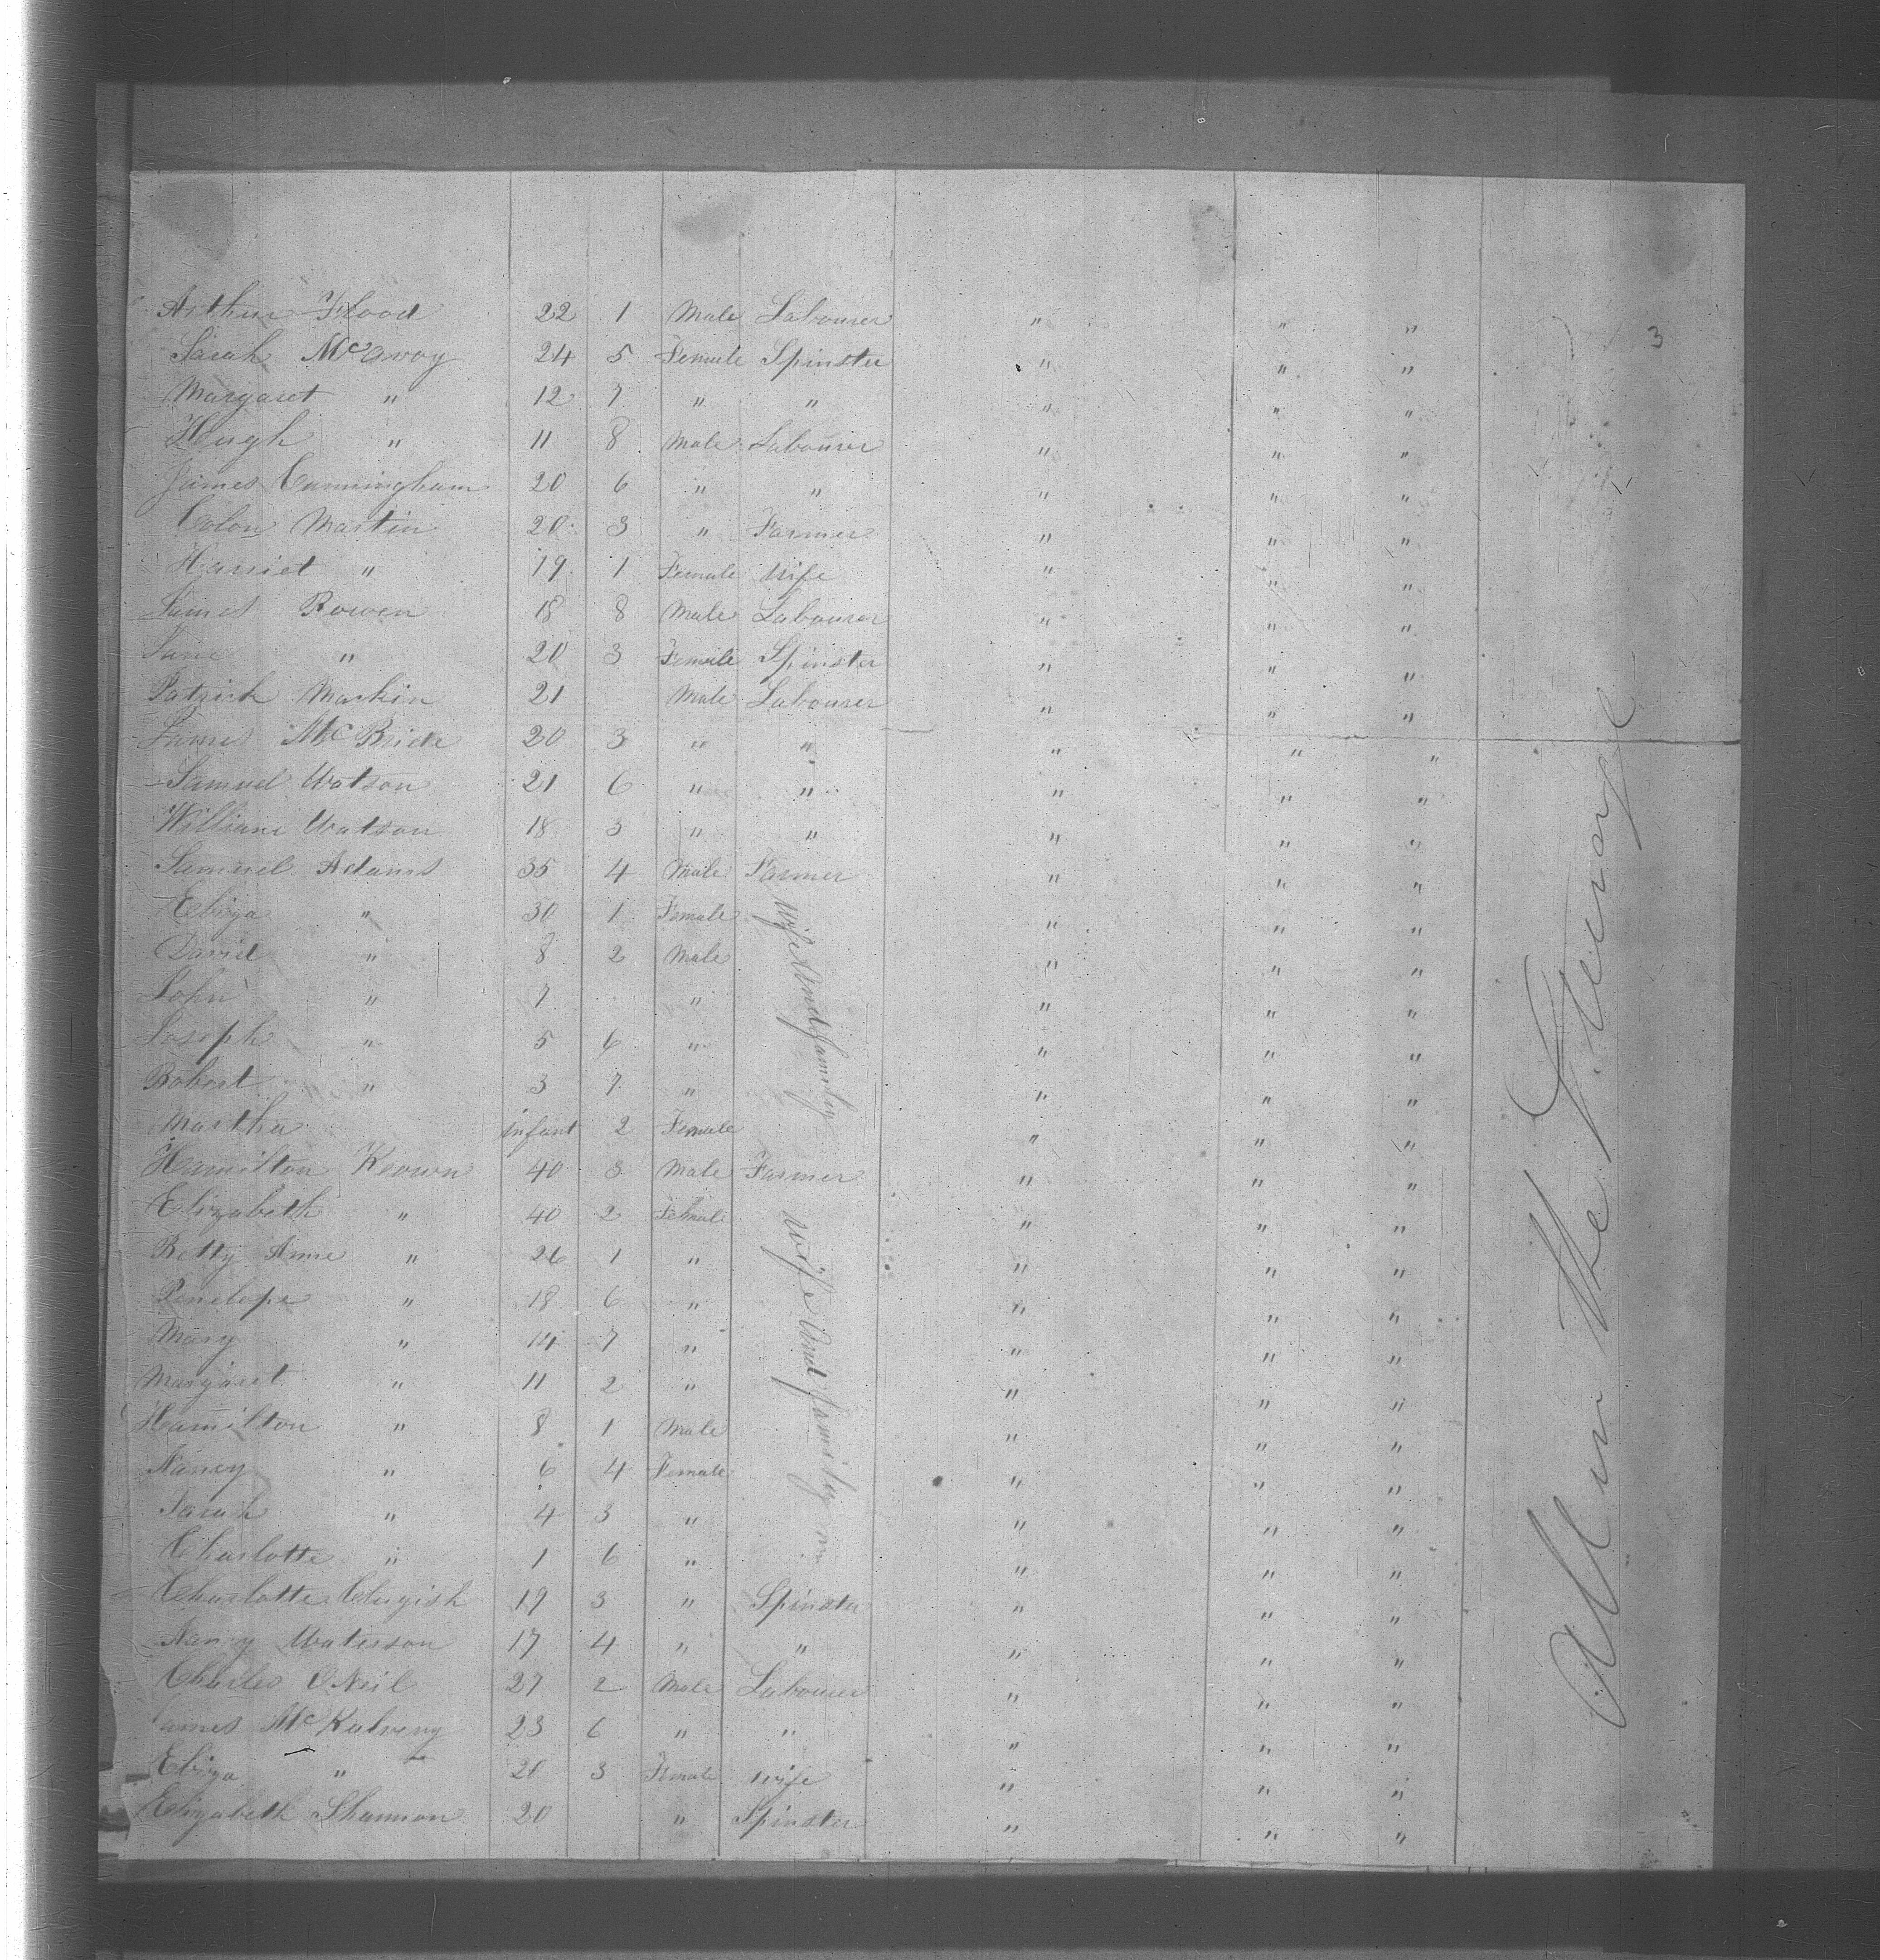 Arthur Flood 22 1 Male Labourer " " "
Sarah McAvoy 24 5 Female Spinster " " " 3
Margaret " 12 7 " " " " "
Hugh " 11 8 Male Labourer " " "
James Cunningham 20 6 " " " " "
Colon Martin 20 3 " Farmer " " "
Harriet " 19 1 Female Wife " " "
James Rowen 18 8 Male Labourer " " "
Jane " 20 3 Female Spinster " " "
Patrick Mackin 21 Male Labourer " " "
James McBride 20 3 " " " " "
Samuel Watson 21 6 " " " " "
William Watson 18 3 " " " " "
Samuel Adams 35 4 Male Farmer " " "
Eliza " 30 1 Female " " "
David " 8 2 Male " " "
John " 7 " " " "
Joseph " 5 6 " " " "
Robert " 3 7 " " " "
Martha infant 2 Female " " "
Wife And family
Hamilton Keown 40 3 Male Farmer " " "
Elizabeth " 40 2 Female " " "
Betty Anne " 26 1 " " " "
Penelope " 18 6 " " " "
Mary " 14 7 " " " "
Margaret " 11 2 " " " "
Hamilton " 8 1 Male " " "
Nancy " 6 4 Female " " "
Sarah " 4 3 " " " "
Charlotte " 1 6 " " " "
Wife And family
Charlotte 19 3 " Spinster " " "
Nancy Waterson 17 4 " " " " "
Charles ONeil 27 2 Male Labourer " " "
James 23 6 " " " " "
Eliza " 20 3 Female Wife " " "
Elizabeth Shannon 20 " Spinster " " "
All in the Steerage